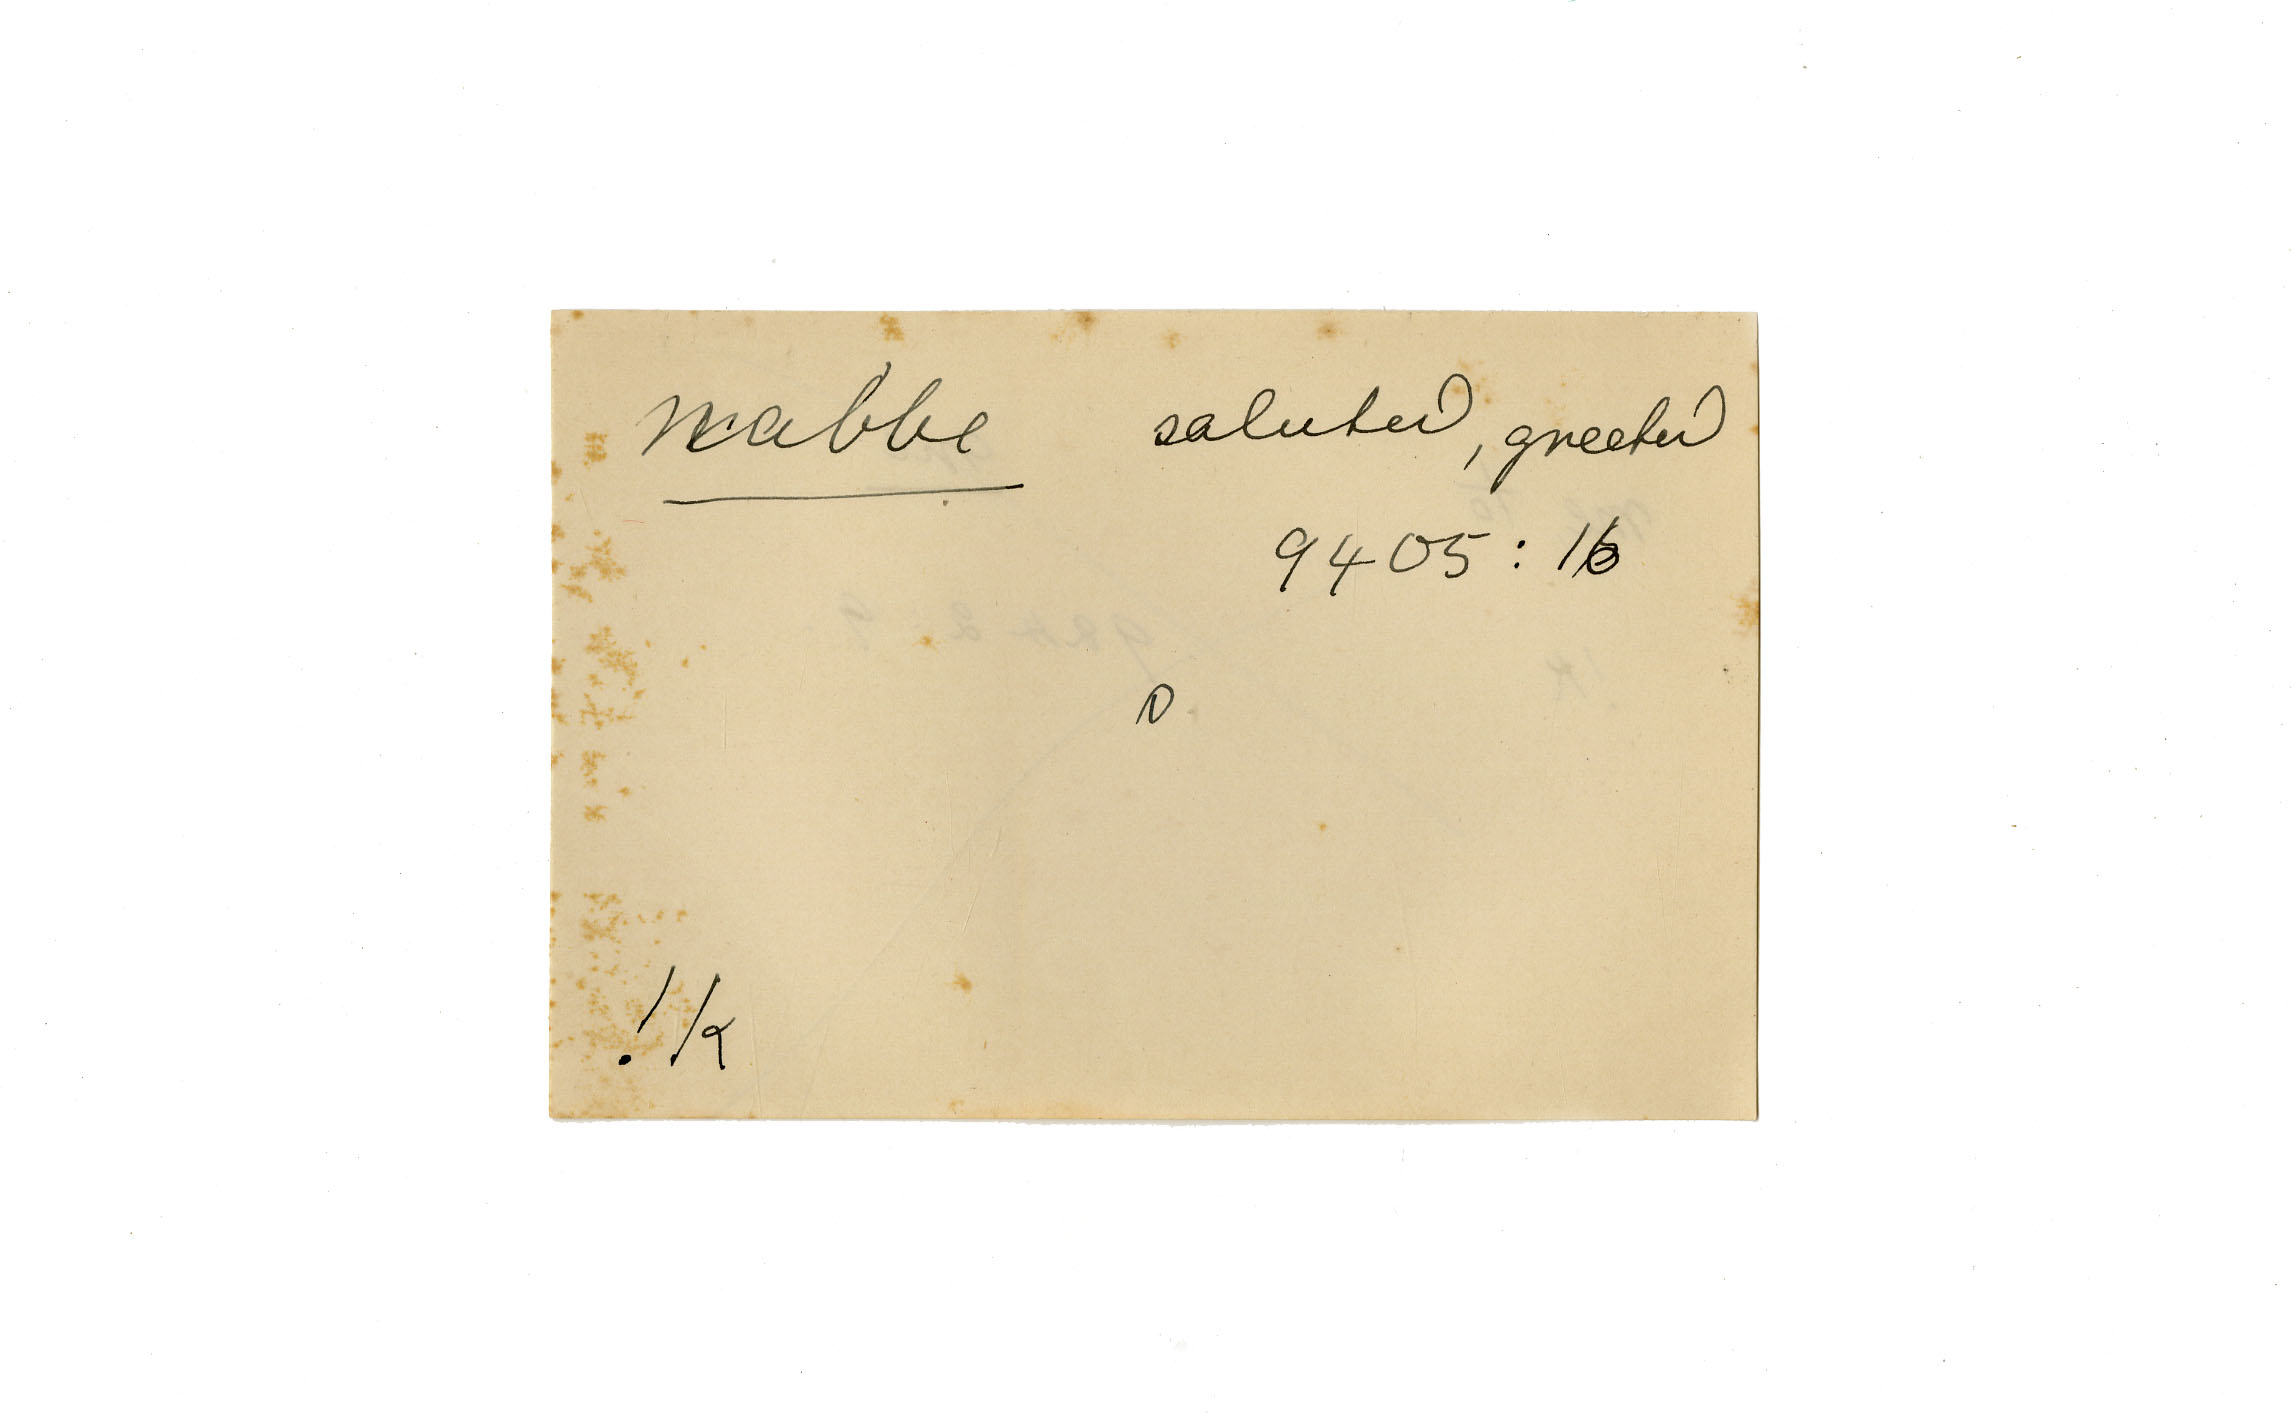 mabbe saluted, greeted
9405:16
D
!k